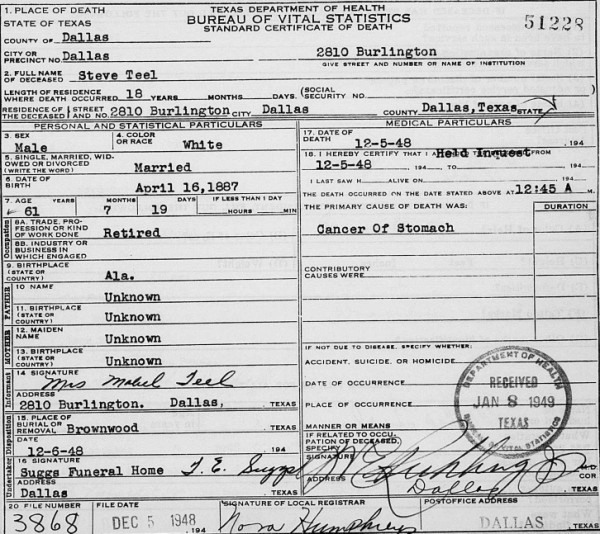 1. PLACE OF DEATH
STATE OF TEXAS
TEXAS DEPARTMENT OF HEALTH
BUREAU OF VITAL STATISTICS
STANDARD CERTIFICATE OF DEATH
51228
COUNTY OF Dallas
CITY OR PRECINCT NO. Dallas
2810 Burlington
GIVE STREET AND NUMBER OR NAME OF INSTITUTION
2. FULL NAME OF DECEASED Steve Teel
LENGTH OF RESIDENCE WHERE DEATH OCCURRED 18 YEARS MONTHS DAYS. (SOCIAL SECURITY NO.
RESIDENCE OF THE DECEASED STREET AND NO. 2810 Burlington CITY Dallas COUNTY Dallas, Texas STATE
PERSONAL AND STATISTICAL PARTICULARS
3. SEX Male
4. COLOR OR RACE White
5. SINGLE, MARRIED, WIDOWED OR DIVORCED (WRITE THE WORD) Married
6. DATE OF BIRTH April 16, 1887
7. AGE YEARS MONTHS DAYS IF LESS THAN 1 DAY
61 7 19 HOURS MIN
Occupation
8A. TRADE, PROFESSION OR KIND OF WORK DONE Retired
8B. INDUSTRY OR BUSINESS IN WHICH ENGAGED
9. BIRTHPLACE (STATE OR COUNTRY) Ala.
FATHER
10 NAME Unknown
11. BIRTHPLACE (STATE OR COUNTRY) Unknown
MOTHER
12. MAIDEN NAME Unknown
13. BIRTHPLACE (STATE OR COUNTRY) Unknown
Informant
14 SIGNATURE Mrs Mabel Teel
ADDRESS 2810 Burlington. Dallas, , TEXAS
Disposition
15. PLACE OF BURIAL OR REMOVAL Brownwood , TEXAS
DATE 12-6-48 , 194
Undertaker
16 SIGNATURE Suggs Funeral Home T. E. Suggs
ADDRESS Dallas , TEXAS
MEDICAL PARTICULARS
17. DATE OF DEATH 12-5-48 , 194
18. I HEREBY CERTIFY THAT I Held Inquest FROM
12-5-48 , 194 , TO , 194
I LAST SAW H ALIVE ON , 194
THE DEATH OCCURRED ON THE DATE STATED ABOVE AT 12:45 A M.
THE PRIMARY CAUSE OF DEATH WAS: DURATION
Cancer Of Stomach
CONTRIBUTORY CAUSES WERE
IF NOT DUE TO DISEASE, SPECIFY WHETHER:
ACCIDENT, SUICIDE, OR HOMICIDE
DATE OF OCCURRENCE
PLACE OF OCCURRENCE
MANNER OR MEANS
IF RELATED TO OCCUPATION OF DECEASED, SPECIFY
DEPARTMENT OF HEALTH
RECEIVED
JAN 8 1949
TEXAS
VITAL STATISTICS
SIGNATURE
M.D.
COR
ADDRESS Dallas , TEXAS
20 FILE NUMBER 3868
FILE DATE DEC 5 1948 , 194
SIGNATURE OF LOCAL REGISTRAR Nora Humphries
POSTOFFICE ADDRESS DALLAS , TEXAS